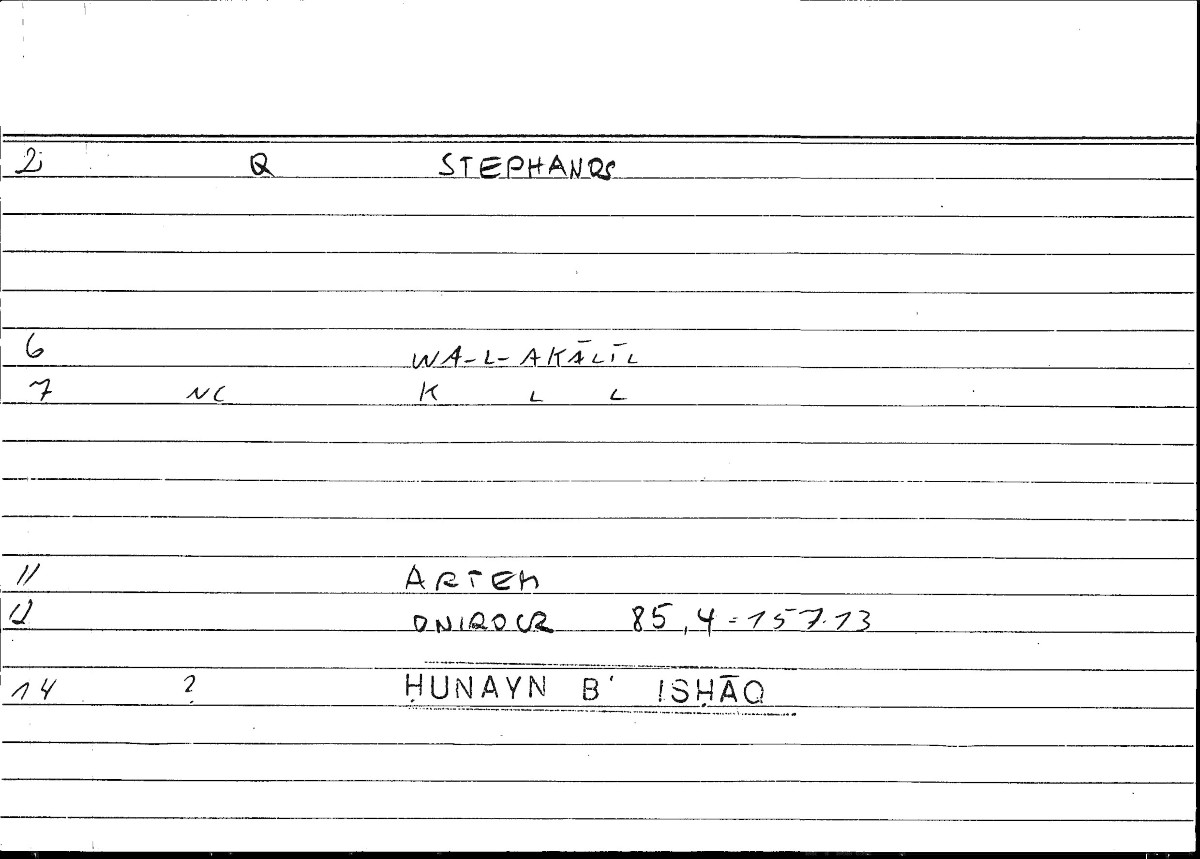 2 Q STEPHANOS
6 WA-L-AKĀLĪL
7 NC K L L
11 ARTEM
12 ONIROCR 85,4=157.13
14 ? ḤUNAYN B' ISḤĀQ